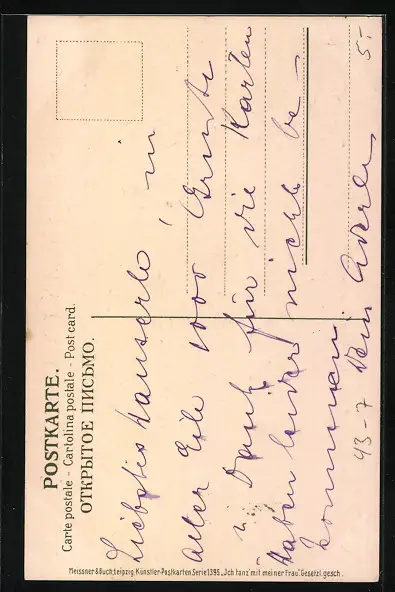 POSTKARTE.
Carte postale - Cartolina postale - Post card.
ОТКРЫТОЕ ПИСЬМО.
Liebstes Hanserle, in
aller Eile 1000 Grüße
u. Dank für die Karten
Haben leider nicht be-
kommen Dein
93-7
5.-
Meissner & Buch, Leipzig. Künstler-Postkarten Serie 1395 „Ich tanz' mit meiner Frau". Gesetzl. gesch.